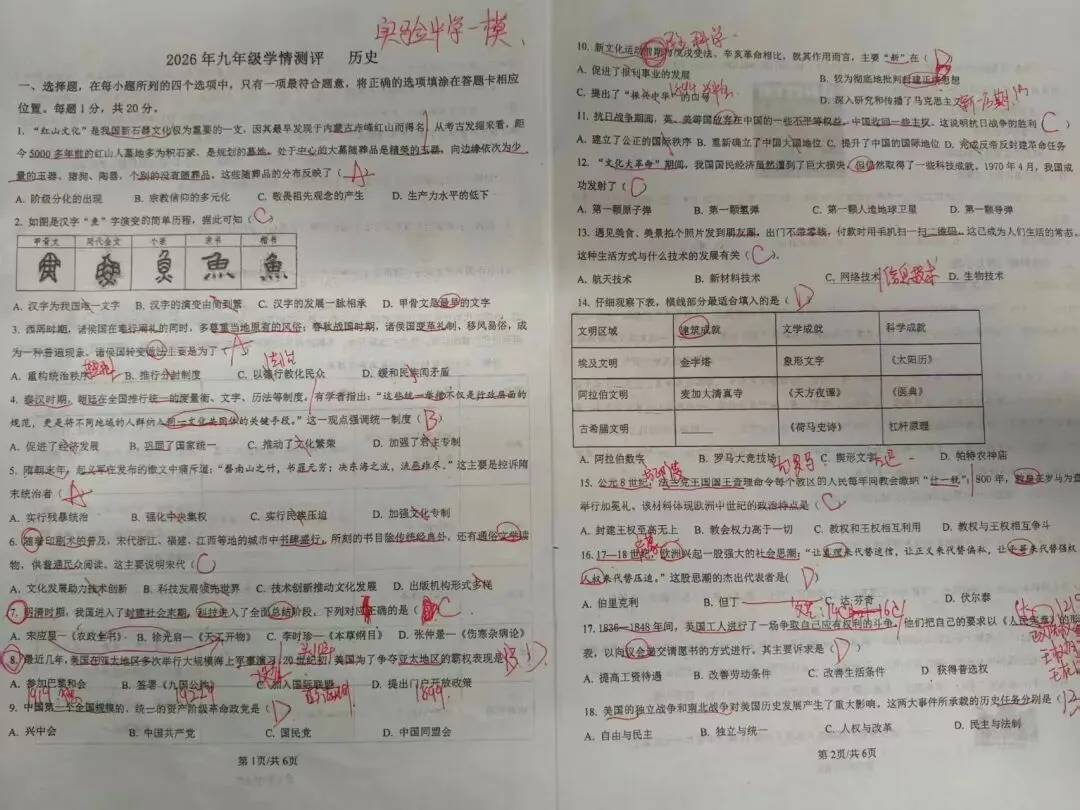 实验中学一模
2026 年九年级学情测评 历史
一、选择题，在每小题所列的四个选项中，只有一项最符合题意，将正确的选项填涂在答题卡相应
位置。每题 1 分，共 20 分。
1. “红山文化”是我国新石器文化极为重要的一支，因其最早发现于内蒙古赤峰红山而得名。从考古发掘来看，距
今 5000 多年前的红山人墓地多为积石冢，是规划的墓地。处于中心的大墓随葬品是精美的玉器，向边缘依次为少
量的玉器、猪狗、陶器，个别的没有随葬品。这些随葬品的分布反映了（ A ）
A. 阶级分化的出现 B. 宗教信仰的多元化 C. 敬畏祖先观念的产生 D. 生产力水平的低下
2. 如图是汉字“鱼”字演变的简单历程，据此可知（ C ）
甲骨文 周代金文 小篆 隶书 楷书
魚 魚
A. 汉字为我国唯一文字 B. 汉字的演变由简到繁 C. 汉字的发展一脉相承 D. 甲骨文是最早的文字
3. 西周时期，诸侯国在奉行周礼的同时，多尊重当地原有的风俗；春秋战国时期，诸侯国变革礼制，移风易俗，成
为一种普遍现象。诸侯国转变做法主要是为了（ A ）
A. 重构统治秩序 B. 推行分封制度 C. 以德行教化民众 D. 缓和民族间矛盾
4. 秦汉时期，朝廷在全国推行统一的度量衡、文字、历法等制度。有学者指出：“这些统一举措不仅是行政层面的
规范，更是将不同地域的人群纳入同一文化共同体的关键手段。”这一观点强调统一制度（ B ）
A. 促进了经济发展 B. 巩固了国家统一 C. 推动了文化繁荣 D. 加强了君主专制
5. 隋朝末年，起义军在发布的檄文中痛斥道：“罄南山之竹，书罪无穷；决东海之波，流恶难尽。”这主要是控诉隋
末统治者（ A ）
A. 实行残暴统治 B. 强化中央集权 C. 实行民族压迫 D. 加强文化专制
6. 随着印刷术的普及，宋代浙江、福建、江西等地的城市中书肆盛行，所刻的书目除传统经典外，还有通俗文学读
物，供普通民众阅读。这主要说明宋代（ C
A. 文化发展助力技术创新 B. 科技发展领先世界 C. 技术创新推动文化发展 D. 出版机构形式多样
7. 明清时期，我国进入了封建社会末期，科技进入了全面总结阶段。下列对应正确的是（ C
A. 宋应星—《农政全书》 B. 徐光启—《天工开物》 C. 李时珍—《本草纲目》 D. 张仲景—《伤寒杂病论》
8. 最近几年，美国在亚太地区多次举行大规模海上军事演习。20 世纪初，美国为了争夺亚太地区的霸权表现是（ D
A. 参加巴黎和会 B. 签署《九国公约》 C. 加入国际联盟 D. 提出门户开放政策
1919 1922 1899
9. 中国第一个全国规模的、统一的资产阶级革命政党是（ D
A. 兴中会 B. 中国共产党 C. 国民党 D. 中国同盟会
第 1页/共 6页
民主 科学
10. 新文化运动前期与戊戌变法、辛亥革命相比，就其作用而言，主要“新”在（ B
A. 促进了报刊事业的发展 B. 较为彻底地批判封建正统思想
C. 提出了“振兴中华”的口号 D. 深入研究和传播了马克思主义
11. 抗日战争期间，英、美等国放弃在中国的一些不平等权益，中国收回一些主权。这说明抗日战争的胜利（ C ）
A. 建立了公正的国际秩序 B. 重新确立了中国大国地位 C. 提升了中国的国际地位 D. 完成反帝反封建革命任务
12. “文化大革命”期间，我国国民经济虽然遭到了巨大损失，但仍然取得了一些科技成就。1970 年 4 月，我国成
功发射了（ C
A. 第一颗原子弹 B. 第一颗氢弹 C. 第一颗人造地球卫星 D. 第一颗导弹
13. 遇见美食、美景拍个照片发到朋友圈，出门不带零钱，付款时用手机扫一扫二维码。这已成为人们生活的常态。
这种生活方式与什么技术的发展有关（ C ）.
A. 航天技术 B. 新材料技术 C. 网络技术 信息技术 D. 生物技术
14. 仔细观察下表，横线部分最适合填入的是（ D
文明区域 建筑成就 文学成就 科学成就
埃及文明 金字塔 象形文字 《太阳历》
阿拉伯文明 麦加大清真寺 《天方夜谭》 《医典》
古希腊文明 ____ 《荷马史诗》 杠杆原理
A. 阿拉伯数字 B. 罗马大竞技场 C. 楔形文字 D. 帕特农神庙
15. 公元 8 世纪，法兰克王国国王查理命令每个教区的人民每年向教会缴纳“什一税”；800 年，教皇在罗马为查
举行加冕礼。该材料体现欧洲中世纪的政治特点是（ C
A. 封建王权至高无上 B. 教会权力高于一切 C. 教权和王权相互利用 D. 教权与王权相互争斗
16. 17—18 世纪，欧洲兴起一股强大的社会思潮：“让真理来代替迷信，让正义来代替偏私，让平等来代替强权
人权来代替压迫。”这股思潮的杰出代表者是( D )
A. 伯里克利 B. 但丁 C. 达·芬奇 D. 伏尔泰
17. 1836—1848 年间，英国工人进行了一场争取自己应有权利的斗争，他们把自己的要求以《人民宪章》的形
表，以向议会递交请愿书的方式进行。其主要诉求是（ D
A. 提高工资待遇 B. 改善劳动条件 C. 改善生活条件 D. 获得普选权
18. 美国的独立战争和南北战争对美国历史发展产生了重大影响，这两大事件所承载的历史任务分别是（
A. 自由与民主 B. 独立与统一 C. 人权与改革 D. 民主与法制
第 2页/共 6页